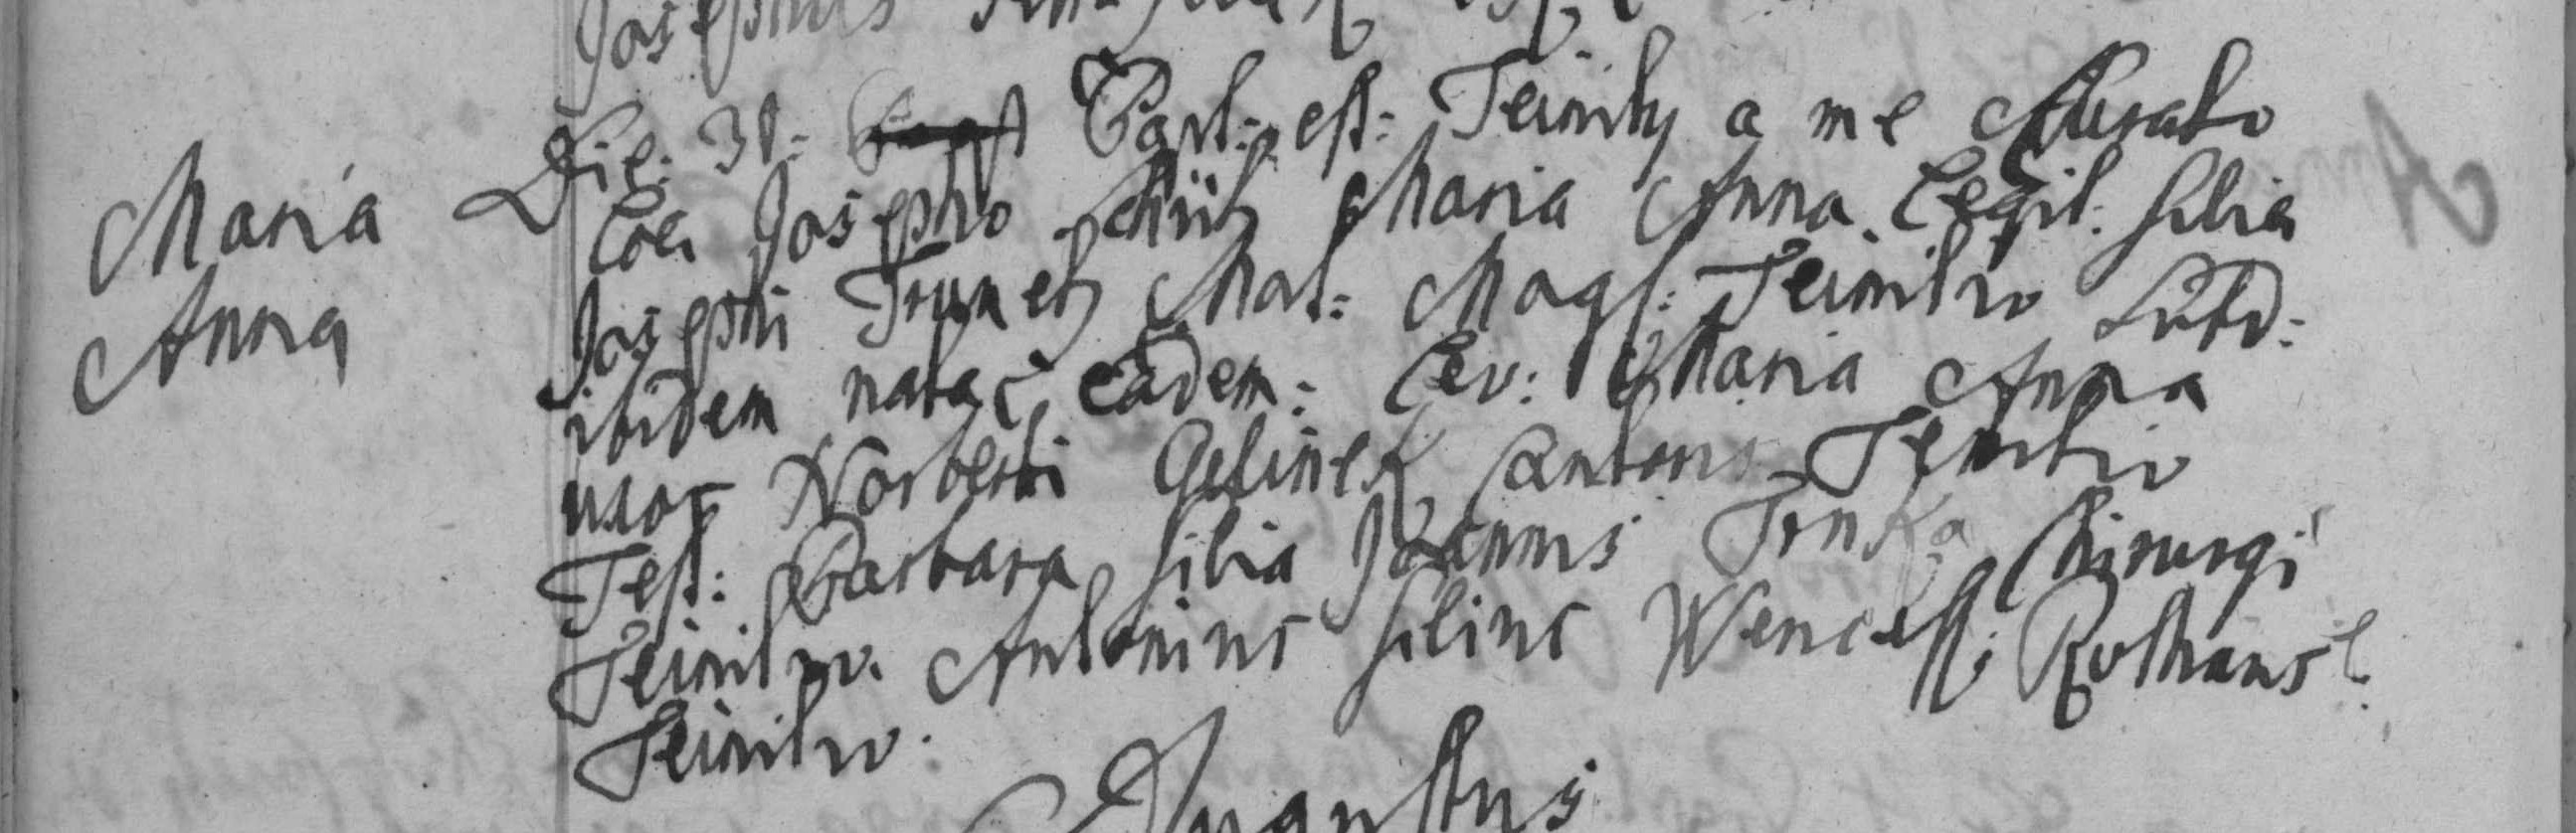 Josephus
Maria
Anna
Die: 31: Bapt: est: Teinity a me Curato
Loci Josepho Maria Anna Legit: filia
Josephi Trunetz Mat: Magd: Teinitio Subd:
ibidem nata eadem: Lev: Maria Anna
uxor Norberti Gelinek Cantoris Teinitio
Test: Barbara filia Joannis Trnka Chirurgi
Teinitio. Antonius filius Wencesl: Rothansl
Teinitio.
Augustus